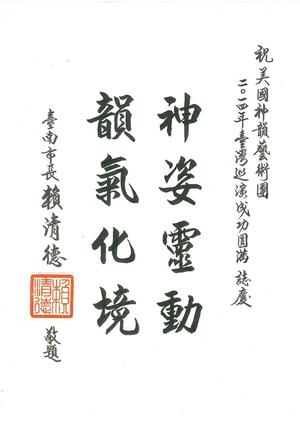 祝美國神韻藝術團
二○一四年臺灣巡演成功圓滿 誌慶
神姿靈動
韻氣化境
臺南市長 賴清德 敬題
賴清德